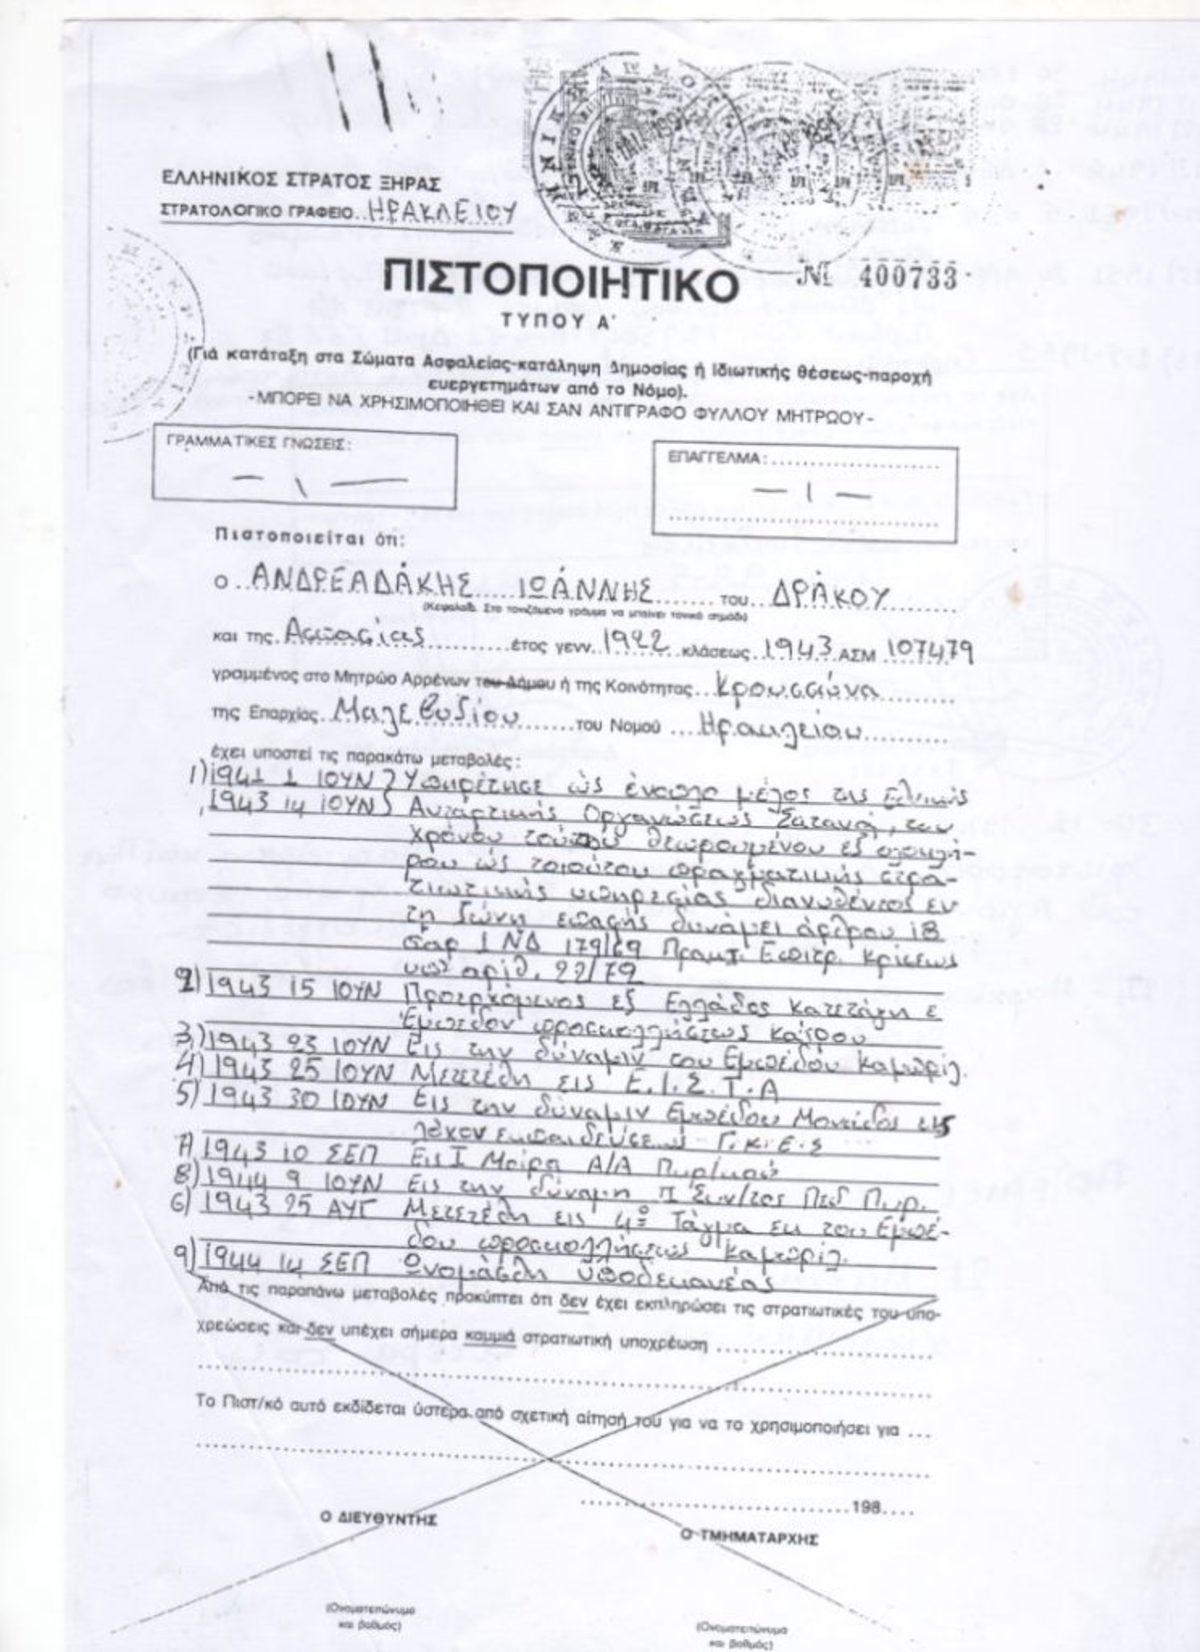 ΕΛΛΗΝΙΚΟΣ ΣΤΡΑΤΟΣ ΞΗΡΑΣ
ΣΤΡΑΤΟΛΟΓΙΚΟ ΓΡΑΦΕΙΟ ΗΡΑΚΛΕΙΟΥ
ΠΙΣΤΟΠΟΙΗΤΙΚΟ
№ 400733
ΤΥΠΟΥ Α΄
(Γιά κατάταξη στα Σώματα Ασφαλείας-κατάληψη Δημοσίας ή Ιδιωτικής θέσεως-παροχή
ευεργετημάτων από το Νόμο).
-ΜΠΟΡΕΙ ΝΑ ΧΡΗΣΙΜΟΠΟΙΗΘΕΙ ΚΑΙ ΣΑΝ ΑΝΤΙΓΡΑΦΟ ΦΥΛΛΟΥ ΜΗΤΡΩΟΥ-
ΓΡΑΜΜΑΤΙΚΕΣ ΓΝΩΣΕΙΣ:
ΕΠΑΓΓΕΛΜΑ:
Πιστοποιείται ότι:
ο ΑΝΔΡΕΑΔΑΚΗΣ ΙΩΑΝΝΗΣ του ΔΡΑΚΟΥ
(Κεφαλαία. Στο τονιζόμενο γράμμα να μπαίνει τονικό σημάδι)
και της Ασπασίας έτος γενν. 1922 κλάσεως 1943 ΑΣΜ 107479
γραμμένος στο Μητρώο Αρρένων του Δήμου ή της Κοινότητας Κρουσσώνα
της Επαρχίας Μαλεβυζίου του Νομού Ηρακλείου
έχει υποστεί τις παρακάτω μεταβολές:
1) 1941 1 ΙΟΥΝ } Υπηρέτησε ώς ένοπλο μέλος της Εθνικής
1943 14 ΙΟΥΝ } Ανταρτικής Οργανώσεως Σατανά, του
χρόνου τούτου θεωρουμένου εξ ολοκλή-
ρου ώς τοιούτου πραγματικής στρα-
τιωτικής υπηρεσίας διανυθέντος εν
τη ζώνη επαφής δυνάμει άρθρου 18
παρ 1 ΝΔ 179/69 Πρακτ. Επιτρ. Κρίσεως
υπ' αριθ. 22/79
2) 1943 15 ΙΟΥΝ Προερχόμενος εξ Ελλάδος κατετάγη ε
Έμπεδον προσκολλήσεως Καΐρου
3) 1943 23 ΙΟΥΝ Εις την δύναμιν του Εμπέδου Καμπρίλ.
4) 1943 25 ΙΟΥΝ Μετετέθη εις Ε.Ι.Σ.Τ.Α
5) 1943 30 ΙΟΥΝ Εις την δύναμιν Εμπέδου Μονάδος εις
λόχον εκπαιδεύσεως Γ.Κ.Ε.Σ
7) 1943 10 ΣΕΠ Εις Ι Μοίρα Α/Α Πυρ/κού
8) 1944 9 ΙΟΥΝ Εις την δύναμη ΙΙ Συν/τος Πεδ Πυρ.
6) 1943 25 ΑΥΓ Μετετέθη εις 4º Τάγμα εκ του Εμπέ-
δου προσκολλήσεως Καμπρίλ.
9) 1944 14 ΣΕΠ Ωνομάσθη υποδεκανέας
Από τις παραπάνω μεταβολές προκύπτει ότι δεν έχει εκπληρώσει τις στρατιωτικές του υπο-
χρεώσεις και δεν υπέχει σήμερα καμμιά στρατιωτική υποχρέωση
Το Πιστ/κό αυτό εκδίδεται ύστερα από σχετική αίτησή του για να το χρησιμοποιήσει για ...
198....
Ο ΔΙΕΥΘΥΝΤΗΣ
Ο ΤΜΗΜΑΤΑΡΧΗΣ
(Ονοματεπώνυμο
και βαθμός)
(Ονοματεπώνυμο
και βαθμός)